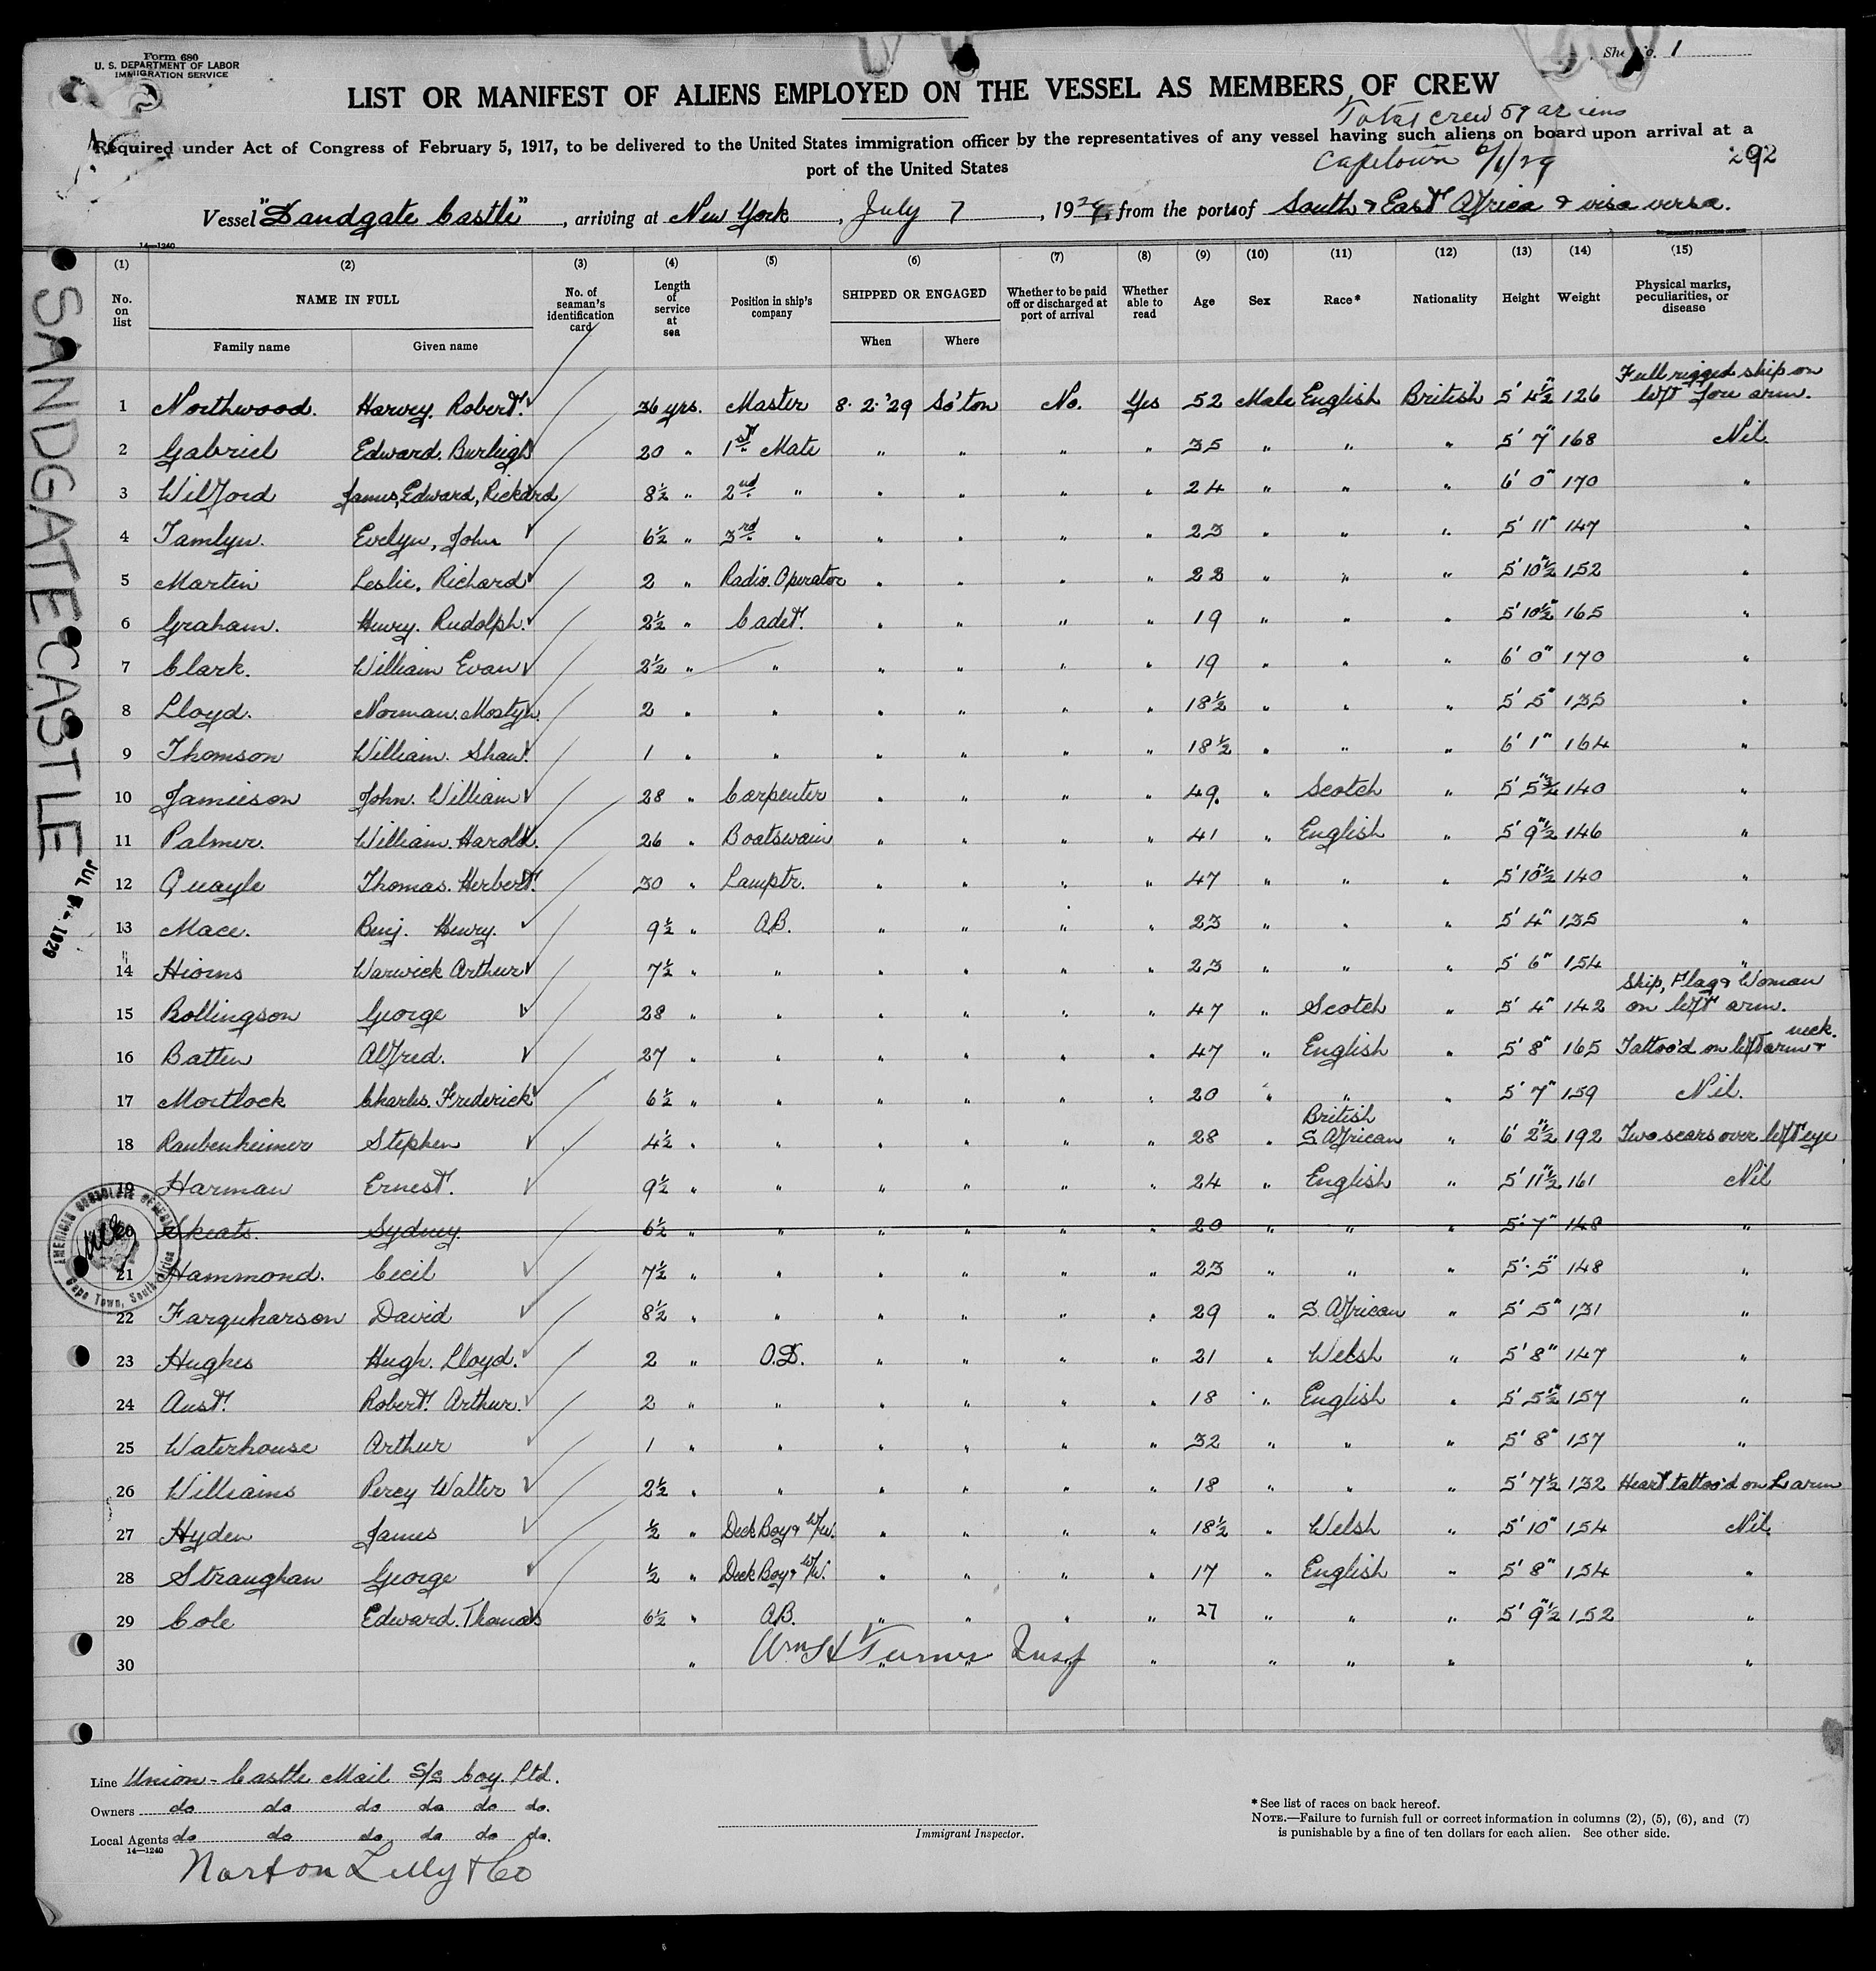 Form 680
U. S. DEPARTMENT OF LABOR
IMMIGRATION SERVICE
Sheet No. 1
LIST OR MANIFEST OF ALIENS EMPLOYED ON THE VESSEL AS MEMBERS OF CREW
Total crew 59 aliens
Required under Act of Congress of February 5, 1917, to be delivered to the United States immigration officer by the representatives of any vessel having such aliens on board upon arrival at a
port of the United States
Capetown 6/1/29
292
Vessel "Sandgate Castle", arriving at New York, July 7, 1929, from the ports of South & East Africa & visa versa.
14—1240
(1) (2) (3) (4) (5) (6) (7) (8) (9) (10) (11) (12) (13) (14) (15)
No. on list NAME IN FULL No. of seaman's identification card Length of service at sea Position in ship's company SHIPPED OR ENGAGED Whether to be paid off or discharged at port of arrival Whether able to read Age Sex Race* Nationality Height Weight Physical marks, peculiarities, or disease
Family name Given name When Where
1 Northwood. Harvey. Robert. 36 yrs. Master 8. 2. '29 So'ton No. Yes 52 Male English British 5' 4½" 126 Full rigged ship on left fore arm.
2 Gabriel Edward. Burleigh 20 " 1st Mate " " " " 35 " " " 5' 7" 168 Nil
3 Wilford James, Edward, Rickard 8½ " 2nd " " " " " 24 " " " 6' 0" 170 "
4 Tamlyn. Evelyn, John 6½ " 3rd " " " " " 23 " " " 5' 11" 147 "
5 Martin Leslie. Richard 2 " Radio. Operator " " " " 22 " " " 5' 10½" 152 "
6 Graham. Henry. Rudolph. 2½ " Cadet. " " " " 19 " " " 5' 10½" 165 "
7 Clark. William Evan 2½ " " " " " " 19 " " " 6' 0" 170 "
8 Lloyd. Norman. Mostyn. 2 " " " " " " 18½ " " " 5' 5" 135 "
9 Thomson William. Shaw. 1 " " " " " " 18½ " " " 6' 1" 164 "
10 Jamieson John. William 28 " Carpenter " " " " 49. " Scotch " 5' 5¾" 140 "
11 Palmer. William. Harold. 26 " Boatswain " " " " 41 " English " 5' 9½" 146 "
12 Quayle Thomas. Herbert. 30 " Lamptr. " " " " 47 " " " 5' 10½" 140 "
13 Mace. Benj. Henry. 9½ " A.B. " " " " 23 " " " 5' 4" 135 "
14 Hiorns Warwick Arthur 7½ " " " " " " 23 " " " 5' 6" 154 "
15 Bollingson George 28 " " " " " " 47 " Scotch " 5' 4" 142 Ship, Flag & Woman on left arm.
16 Batten Alfred. 27 " " " " " " 47 " English " 5' 8" 165 Tattoo'd on left arm & neck.
17 Mortlock Charles. Frederick 6½ " " " " " " 20 " " " 5' 7" 159 Nil.
18 Raubenheimer Stephen 4½ " " " " " " 28 " British S. African " 6' 2½" 192 Two scars over left eye
19 Harman Ernest. 9½ " " " " " " 24 " English " 5' 11½" 161 Nil
20 Skeats. Sydney. 6½ " " " " " " 20 " " " 5' 7" 148 "
21 Hammond. Cecil 7½ " " " " " " 23 " " " 5' 5" 148 "
22 Farquharson David 8½ " " " " " " 29 " S. African " 5' 5" 131 "
23 Hughes Hugh. Lloyd. 2 " O.S. " " " " 21 " Welsh " 5' 8" 147 "
24 Aust. Robert. Arthur. 2 " " " " " " 18 " English " 5' 5½" 157 "
25 Waterhouse Arthur 1 " " " " " " 32 " " " 5' 8" 157 "
26 Williams Percy Walter 2½ " " " " " " 18 " " " 5' 7½ 132 Heart tattoo'd on L arm
27 Hyden James ½ " Deck Boy & W/W. " " " " 18½ " Welsh " 5' 10" 154 Nil.
28 Straughan George ½ " Deck Boy & W/W. " " " " 17 " English " 5' 8" 154 "
29 Cole Edward. Thomas 6½ " A.B. " " " " 27 " " " 5' 9½" 152 "
30 " " " " " " " " "
Wm H Turner Insp
SANDGATE CASTLE
JUL 1929
AMERICAN CONSULATE GENERAL
Cape Town, South Africa
Line Union-Castle Mail S/S Coy. Ltd.
Owners do do do do do do.
Local Agents do do do do do do.
14—1240
Norton Lilly & Co
Immigrant Inspector.
* See list of races on back hereof.
NOTE.—Failure to furnish full or correct information in columns (2), (5), (6), and (7)
is punishable by a fine of ten dollars for each alien. See other side.